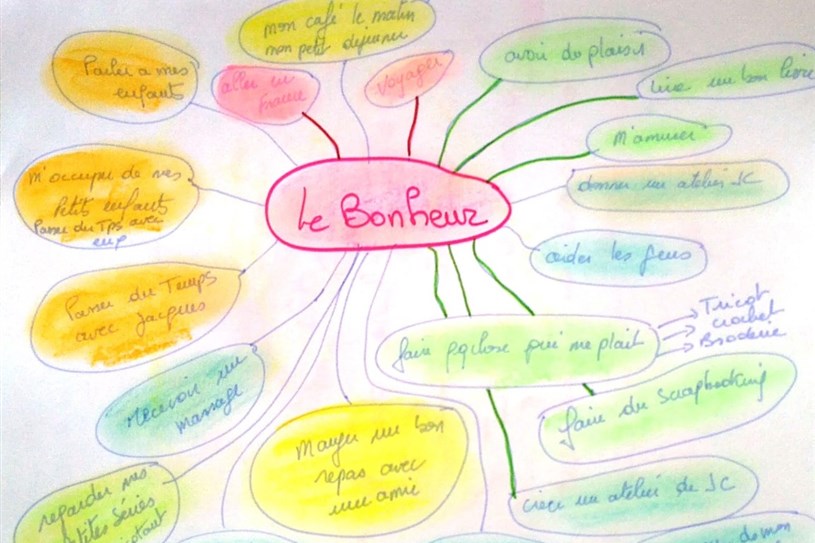 mon café le matin
mon petit dejeuner
avoir du plaisir
Parler a mes
enfants
aller en
France
Voyager
lire un bon livre
M'amuser
m'occuper de mes
Petits enfants
Passer du Tps avec
eux
donner un atelier SC
Le Bonheur
aider les gens
Passer du Temps
avec Jacques
faire qqchose qui me plait
Tricot
crochet
Broderie
Recevoir un
massage
faire du scrapbooking
Manger un bon
repas avec
une amie
regarder mes
petites séries
créer un atelier de SC